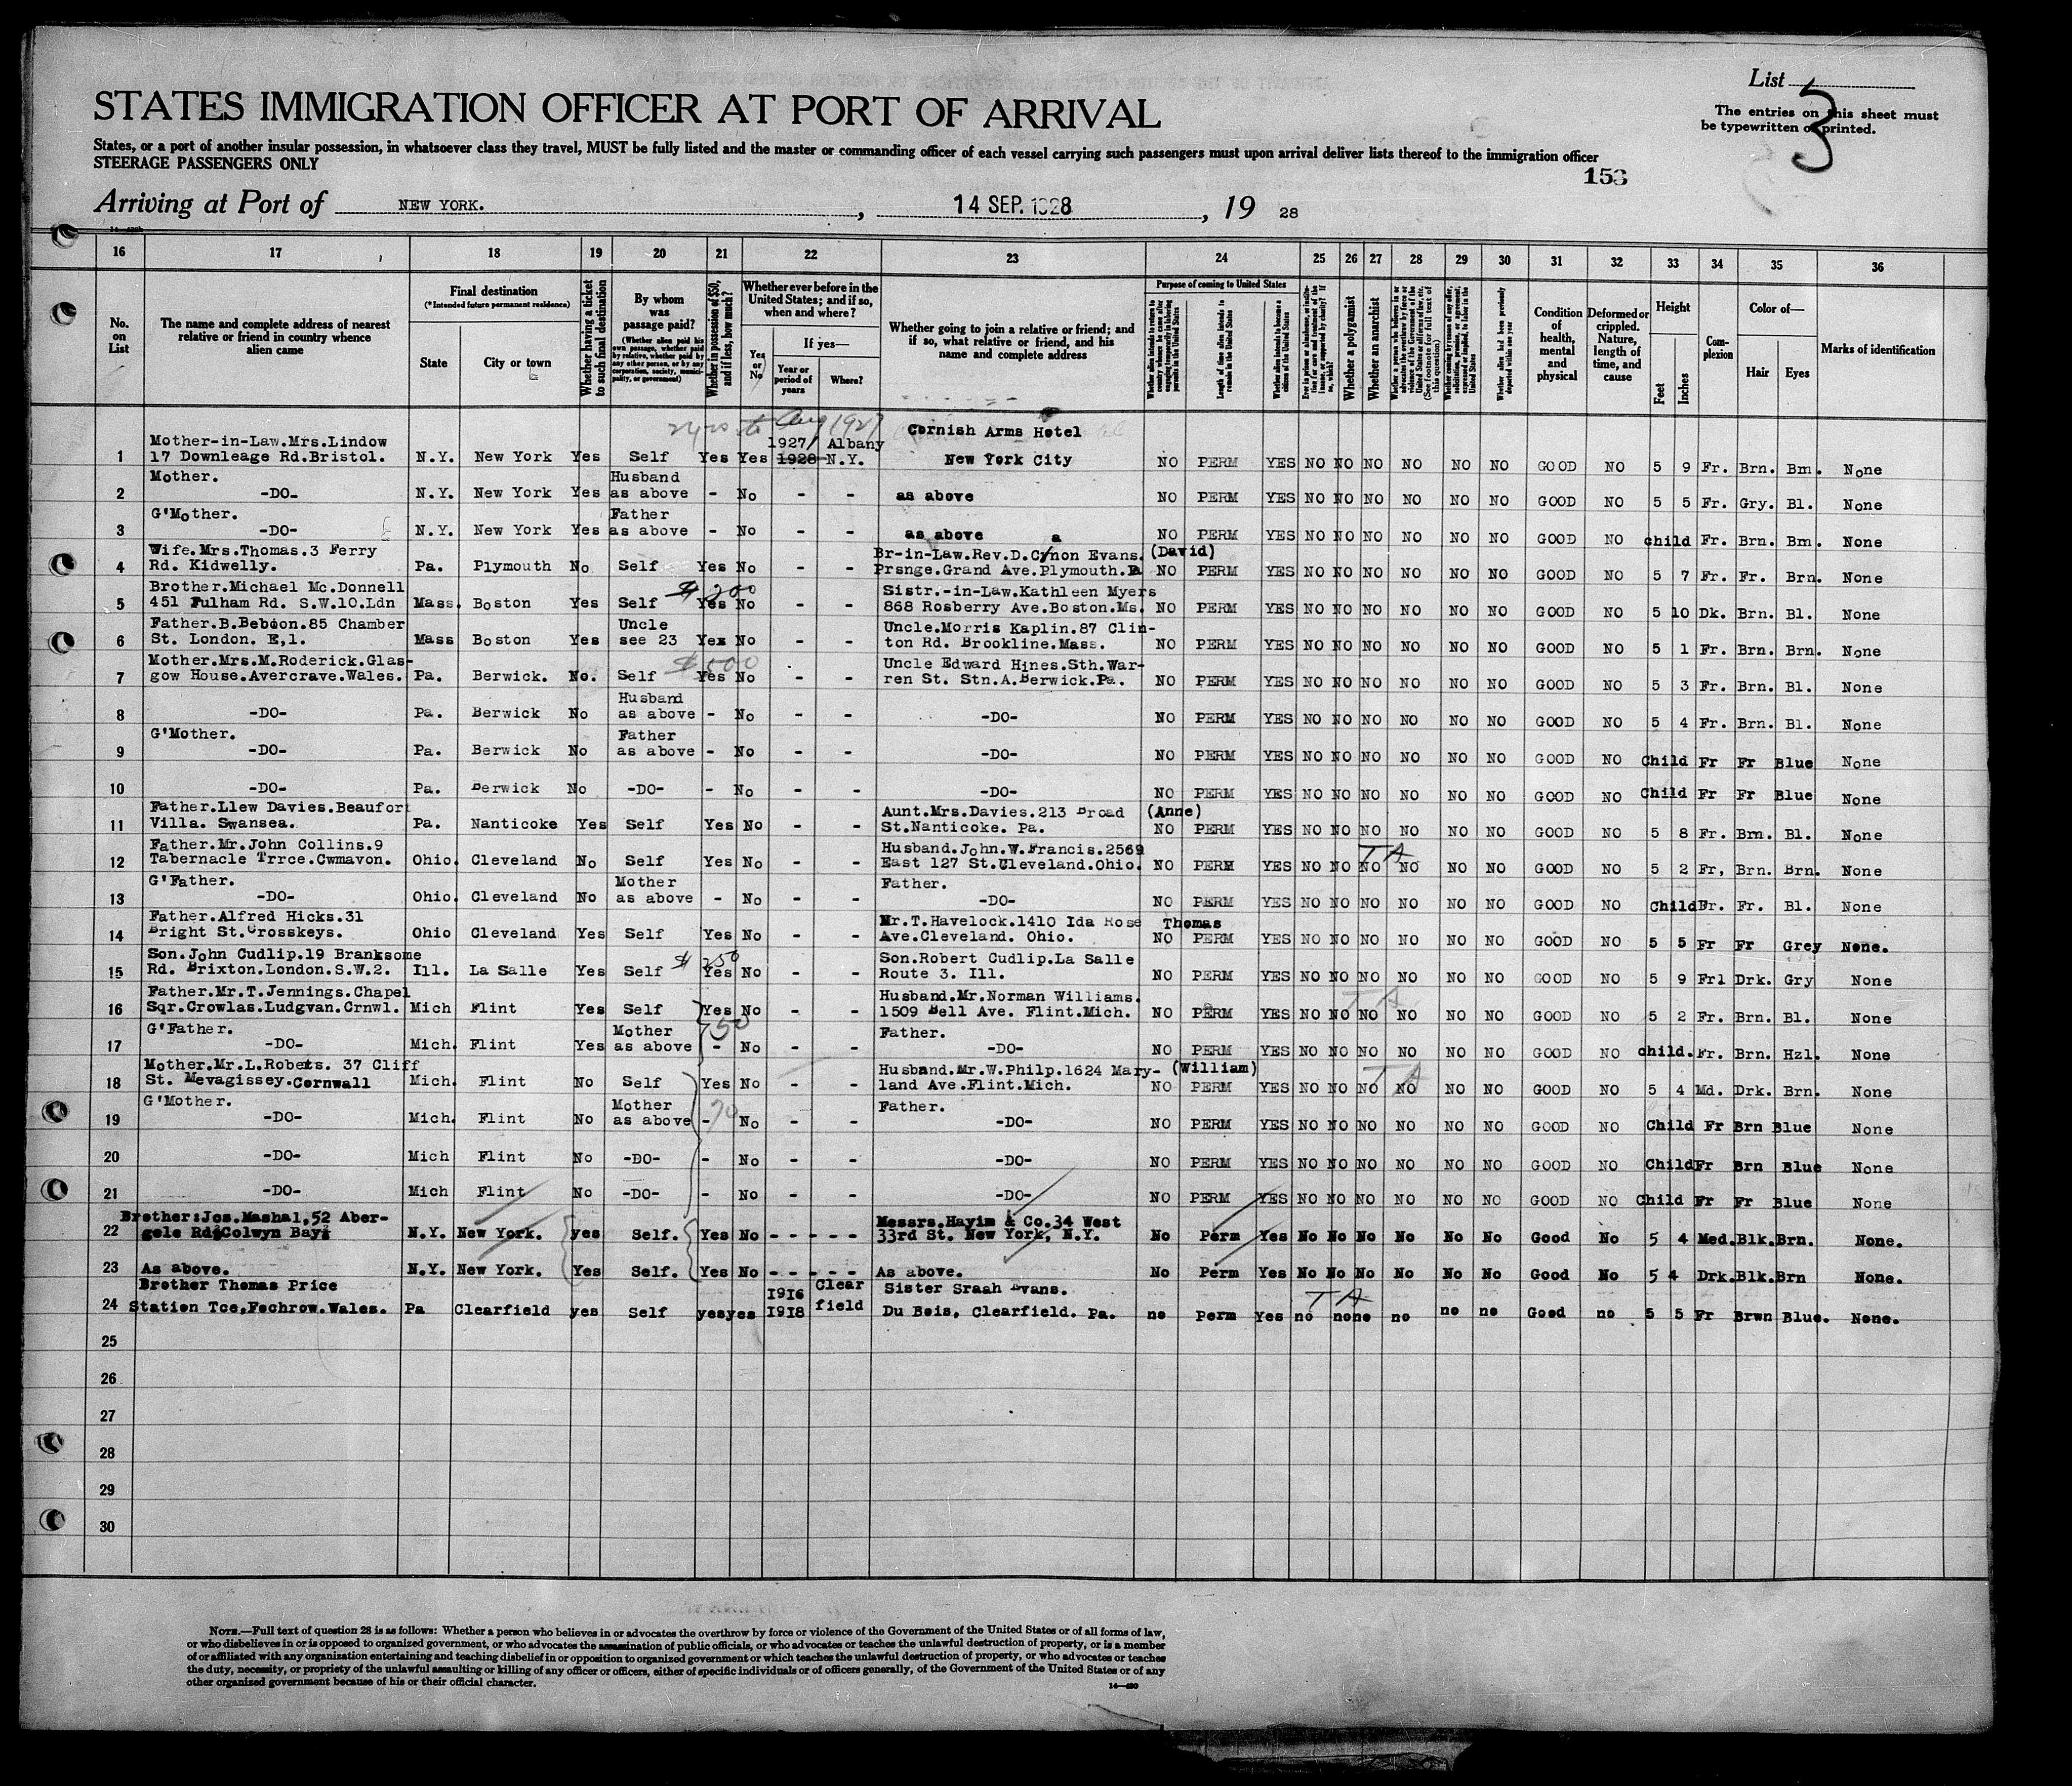 List 3
The entries on this sheet must
be typewritten or printed.
STATES IMMIGRATION OFFICER AT PORT OF ARRIVAL
States, or a port of another insular possession, in whatsoever class they travel, MUST be fully listed and the master or commanding officer of each vessel carrying such passengers must upon arrival deliver lists thereof to the immigration officer
STEERAGE PASSENGERS ONLY
153
Arriving at Port of NEW YORK. , 14 SEP. 1928 , 19 28
16 17 18 19 20 21 22 23 24 25 26 27 28 29 30 31 32 33 34 35 36
No. on List
The name and complete address of nearest relative or friend in country whence alien came
Final destination
(*Intended future permanent residence)
State
City or town
Whether having a ticket to such final destination
By whom was passage paid?
(Whether alien paid his own passage, whether paid by relative, whether paid by any other person, or by any corporation, society, municipality, or government)
Whether in possession of $50, and if less, how much?
Whether ever before in the United States; and if so, when and where?
Yes or No
If yes—
Year or period of years
Where?
Whether going to join a relative or friend; and if so, what relative or friend, and his name and complete address
Purpose of coming to United States
Length of time alien intends to remain in the United States
Whether alien intends to become a citizen of the United States
Whether a polygamist
Whether an anarchist
Condition of health, mental and physical
Deformed or crippled. Nature, length of time, and cause
Height
Feet
Inches
Complexion
Color of—
Hair
Eyes
Marks of identification
Aug 1927
1927/ Albany Cornish Arms Hotel
Mother-in-Law.Mrs.Lindow
1 17 Downleage Rd.Bristol. N.Y. New York Yes Self Yes Yes 1928 N.Y. New York City NO PERM YES NO NO NO NO NO NO GOOD NO 5 9 Fr. Brn. Brn. None
Mother. Husband
2 -DO- N.Y. New York Yes as above - No - - as above NO PERM YES NO NO NO NO NO NO GOOD NO 5 5 Fr. Gry. Bl. None
G'Mother. Father
3 -DO- N.Y. New York Yes as above - No - - as above NO PERM YES NO NO NO NO NO NO GOOD NO child Fr. Brn. Brn. None
Wife.Mrs.Thomas.3 Ferry Br-in-Law.Rev.D.Cynon Evans. (David)
4 Rd. Kidwelly. Pa. Plymouth No Self Yes No - - Prsnge.Grand Ave.Plymouth.Pa NO PERM YES NO NO NO NO NO NO GOOD NO 5 7 Fr. Fr. Brn. None
Brother.Michael Mc.Donnell $ 200 Sistr.-in-Law.Kathleen Myers
5 451 Fulham Rd. S.W.10.Ldn Mass. Boston Yes Self Yes No - - 868 Rosberry Ave.Boston.Ms. NO PERM YES NO NO NO NO NO NO GOOD NO 5 10 Dk. Brn. Bl. None
Father.B.Beboon.85 Chamber Uncle Uncle.Morris Kaplin.87 Clin-
6 St. London. E,1. Mass Boston Yes see 23 Yes No - - ton Rd. Brookline.Mass. NO PERM YES NO NO NO NO NO NO GOOD NO 5 1 Fr. Brn. Brn. None
Mother.Mrs.M.Roderick.Glas- $ 500 Uncle Edward Hines.Sth.War-
7 gow House.Avercrave.Wales. Pa. Berwick. No. Self Yes No - - ren St. Stn.A.Berwick.Pa. NO PERM YES NO NO NO NO NO NO GOOD NO 5 3 Fr. Brn. Bl. None
Husband
8 -DO- Pa. Berwick No as above - No - - -DO- NO PERM YES NO NO NO NO NO NO GOOD NO 5 4 Fr. Brn. Bl. None
G'Mother. Father
9 -DO- Pa. Berwick No as above - No - - -DO- NO PERM YES NO NO NO NO NO NO GOOD NO Child Fr Fr Blue None
10 -DO- Pa. Berwick No -DO- - No - - -DO- NO PERM YES NO NO NO NO NO NO GOOD NO Child Fr Fr Blue None
Father.Llew Davies.Beaufort Aunt.Mrs.Davies.213 Broad (Anne)
11 Villa. Swansea. Pa. Nanticoke Yes Self Yes No - - St.Nanticoke. Pa. NO PERM YES NO NO NO NO NO NO GOOD NO 5 8 Fr. Brn. Bl. None
Father.Mr.John Collins.9 Husband.John.W.Francis.2569 TA
12 Tabernacle Trrce.Cwmavon. Ohio. Cleveland No Self Yes No - - East 127 St.Cleveland.Ohio. NO PERM YES NO NO NO NO NO NO GOOD NO 5 2 Fr, Brn. Brn. None
G'Father. Mother Father.
13 -DO- Ohio. Cleveland No as above - No - - -DO- NO PERM YES NO NO NO NO NO NO GOOD NO Child Fr. Fr. Bl. None
Father.Alfred Hicks.31 Mr.T.Havelock.1410 Ida Rose Thomas
14 Bright St.Crosskeys. Ohio Cleveland Yes Self Yes No - - Ave.Cleveland. Ohio. NO PERM YES NO NO NO NO NO NO GOOD NO 5 5 Fr Fr Grey None.
Son.John Cudlip.19 Branksome $ 250 Son.Robert Cudlip.La Salle
15 Rd. Brixton.London.S.W.2. Ill. La Salle Yes Self Yes No - - Route 3. Ill. NO PERM YES NO NO NO NO NO NO GOOD NO 5 9 Frl Drk. Gry None
Father.Mr.T.Jennings.Chapel Husband.Mr.Norman Williams. TA
16 Sqr.Crowlas.Ludgvan.Crnwl. Mich Flint Yes Self Yes No - - 1509 Bell Ave. Flint.Mich. NO PERM YES NO NO NO NO NO NO GOOD NO 5 2 Fr. Brn. Bl. None
G'Father. Mother 50 Father.
17 -DO- Mich. Flint Yes as above - No - - -DO- NO PERM YES NO NO NO NO NO NO GOOD NO child. Fr. Brn. Hzl. None
Mother.Mr.L.Robets. 37 Cliff Husband.Mr.W.Philp.1624 Mary- (William) TA
18 St. Mevagissey.Cornwall Mich. Flint No Self Yes No - - land Ave.Flint.Mich. NO PERM YES NO NO NO NO NO NO GOOD NO 5 4 Md. Drk. Brn. None
G'Mother. Mother 70 Father.
19 -DO- Mich. Flint No as above - No - - -DO- NO PERM YES NO NO NO NO NO NO GOOD NO Child Fr Brn Blue None
20 -DO- Mich Flint No -DO- - No - - -DO- NO PERM YES NO NO NO NO NO NO GOOD NO Child Fr Brn Blue None
21 -DO- Mich Flint No -DO- - No - - -DO- NO PERM YES NO NO NO NO NO NO GOOD NO Child Fr Fr Blue None
Brother:Jos.Mashal,52 Aber- Messrs.Hayim & Co.34 West
22 gele Rd,Colwyn Bay. N.Y. New York. yes Self. Yes No - - - - - 33rd St. New York, N.Y. No Perm Yes No No No No No No Good No 5 4 Med. Blk. Brn. None.
23 As above. N.Y. New York. Yes Self. Yes No - - - - - As above. No Perm Yes No No No No No No Good No 5 4 Drk. Blk. Brn None.
Brother Thomas Price 1916 Clear Sister Sraah Evans. TA
24 Station Tce,Fochrow.Wales. Pa Clearfield yes Self yes yes 1918 field Du Bois, Clearfield. Pa. no Perm Yes no none no no no Good no 5 5 Fr Brwn Blue. None.
25
26
27
28
29
30
NOTE.—Full text of question 28 is as follows: Whether a person who believes in or advocates the overthrow by force or violence of the Government of the United States or of all forms of law,
or who disbelieves in or is opposed to organized government, or who advocates the assassination of public officials, or who advocates or teaches the unlawful destruction of property, or is a member
of or affiliated with any organization entertaining and teaching disbelief in or opposition to organized government or which teaches the unlawful destruction of property, or who advocates or teaches
the duty, necessity, or propriety of the unlawful assaulting or killing of any officer or officers, either of specific individuals or of officers generally, of the Government of the United States or of any
other organized government because of his or their official character.
14—430